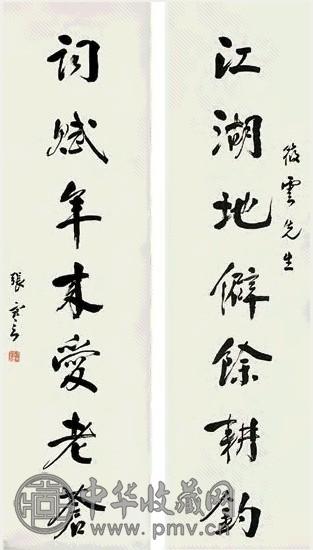 江湖地僻餘耕釣
筱雲先生
詞賦年來愛老蒼
張
中华收藏网
www.pmv.cn